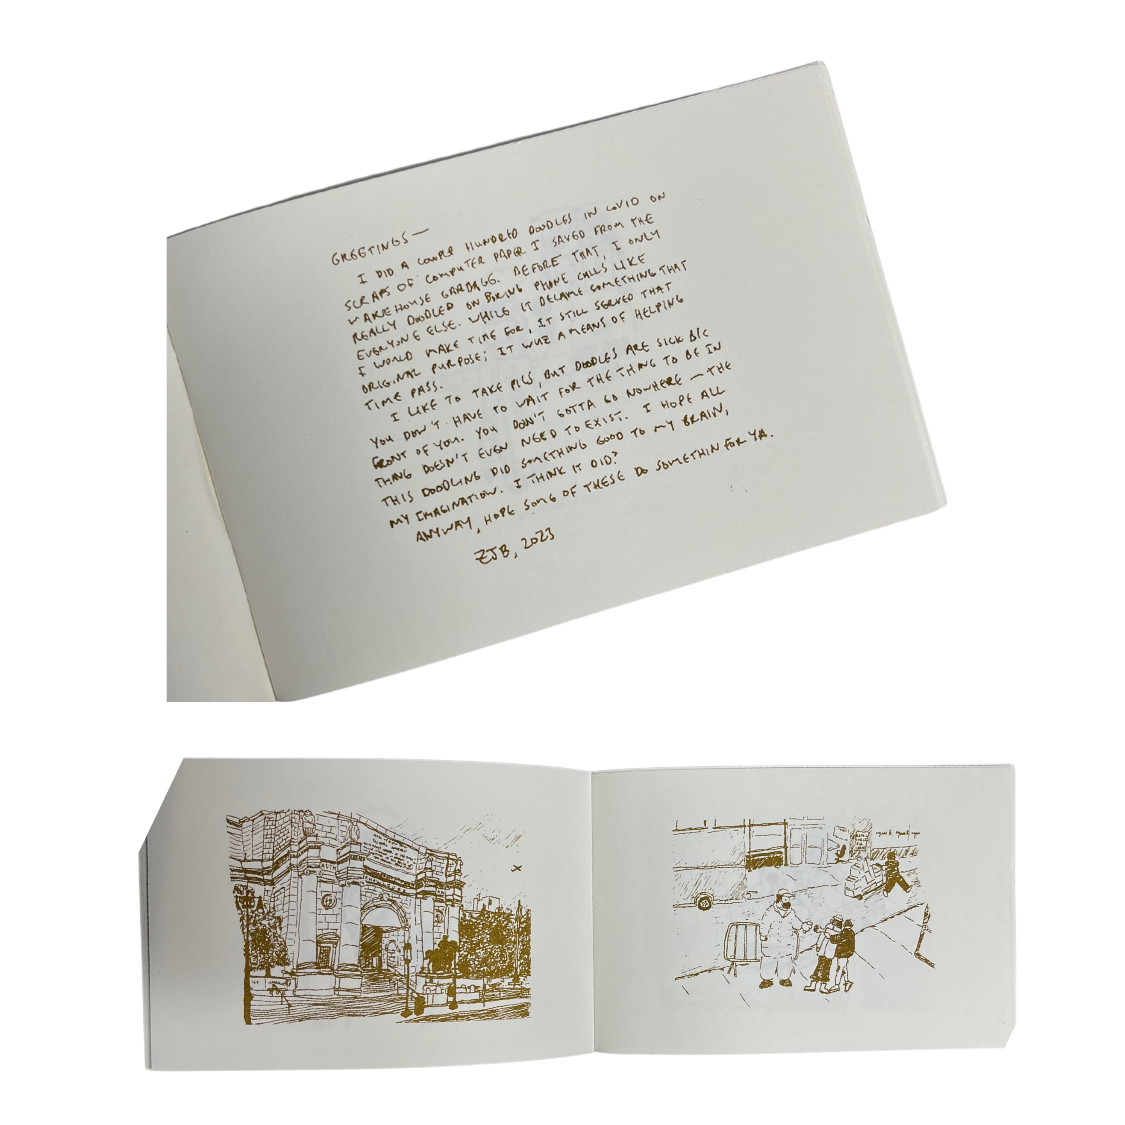 GREETINGS—
I DID A COUPLE HUNDRED DOODLES IN COVID ON
SCRAPS OF COMPUTER PAPER I SAVED FROM THE
WAREHOUSE GARBAGE. BEFORE THAT, I ONLY
REALLY DOODLED ON BORING PHONE CALLS LIKE
EVERYONE ELSE. WHILE IT BECAME SOMETHING THAT
I WOULD MAKE TIME FOR, IT STILL SERVED THAT
ORIGINAL PURPOSE; IT WUZ A MEANS OF HELPING
TIME PASS.
I LIKE TO TAKE PICS, BUT DOODLES ARE SICK B/C
YOU DON'T HAVE TO WAIT FOR THE THING TO BE IN
FRONT OF YOU. YOU DON'T GOTTA GO NOWHERE — THE
THANG DOESN'T EVEN NEED TO EXIST. I HOPE ALL
THIS DOODLING DID SOMETHING GOOD TO MY BRAIN,
MY IMAGINATION. I THINK IT DID?
ANYWAY, HOPE SOME OF THESE DO SOMETHIN FOR YA.
ZJB, 2023